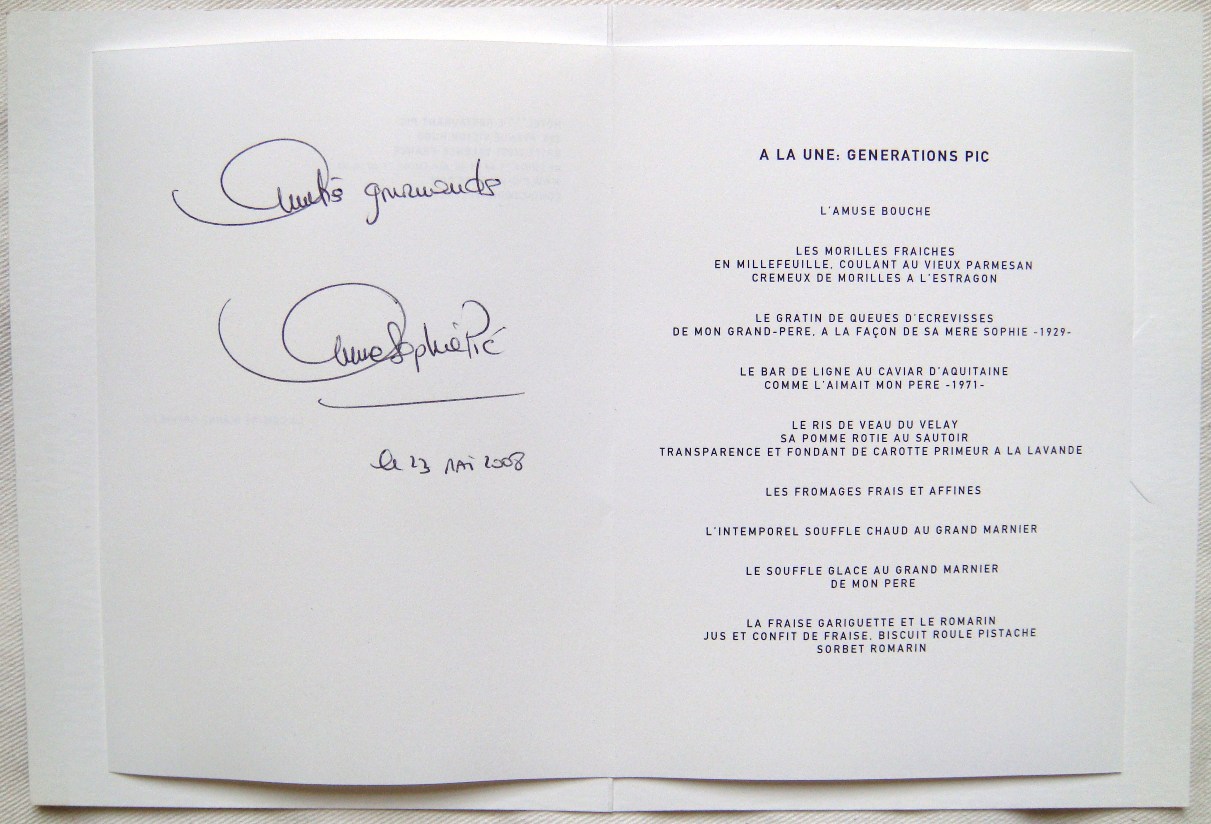 Amitiés gourmandes
Anne Sophie Pic
le 23 mai 2008
A LA UNE: GENERATIONS PIC
L'AMUSE BOUCHE
LES MORILLES FRAICHES
EN MILLEFEUILLE, COULANT AU VIEUX PARMESAN
CREMEUX DE MORILLES A L'ESTRAGON
LE GRATIN DE QUEUES D'ECREVISSES
DE MON GRAND-PERE, A LA FAÇON DE SA MERE SOPHIE -1929-
LE BAR DE LIGNE AU CAVIAR D'AQUITAINE
COMME L'AIMAIT MON PERE -1971-
LE RIS DE VEAU DU VELAY
SA POMME ROTIE AU SAUTOIR
TRANSPARENCE ET FONDANT DE CAROTTE PRIMEUR A LA LAVANDE
LES FROMAGES FRAIS ET AFFINES
L'INTEMPOREL SOUFFLE CHAUD AU GRAND MARNIER
LE SOUFFLE GLACE AU GRAND MARNIER
DE MON PERE
LA FRAISE GARIGUETTE ET LE ROMARIN
JUS ET CONFIT DE FRAISE, BISCUIT ROULE PISTACHE
SORBET ROMARIN